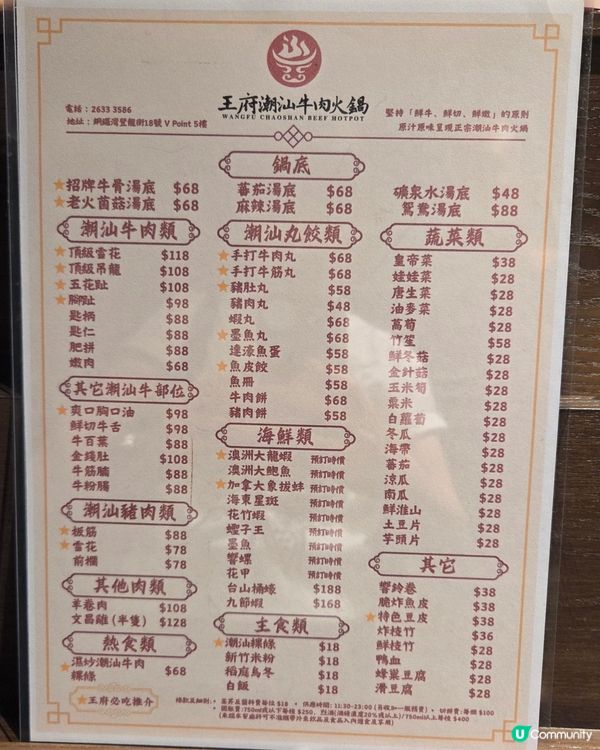 王府潮汕牛肉火鍋
WANGFU CHAOSHAN BEEF HOTPOT
電話：2633 3586
地址：銅鑼灣登龍街18號 V Point 5樓
堅持「鮮牛、鮮切、鮮嫩」的原則
原汁原味呈現正宗潮汕牛肉火鍋
鍋底
招牌牛骨湯底 $68
老火菌菇湯底 $68
蕃茄湯底 $68
麻辣湯底 $68
礦泉水湯底 $48
鴛鴦湯底 $88
潮汕牛肉類
頂級雪花 $118
頂級吊龍 $108
五花趾 $108
腳趾 $98
匙柄 $88
匙仁 $88
肥拼 $88
嫩肉 $68
其它潮汕牛部位
爽口胸口油 $98
鮮切牛舌 $98
牛百葉 $88
金錢肚 $108
牛筋腩 $88
牛粉腸 $88
潮汕豬肉類
板筋 $88
雪花 $78
前欄 $78
其他肉類
羊卷肉 $108
文昌雞 (半隻) $128
熱食類
濕炒潮汕牛肉
粿條 $68
王府必吃推介
潮汕丸餃類
手打牛肉丸 $68
手打牛筋丸 $68
豬肚丸 $58
豬肉丸 $48
蝦丸 $68
墨魚丸 $68
達濠魚蛋 $58
魚皮餃 $58
魚冊 $58
牛肉餅 $68
豬肉餅 $58
海鮮類
澳洲大龍蝦 預訂時價
澳洲大鮑魚 預訂時價
加拿大象拔蚌 預訂時價
海東星斑 預訂時價
花竹蝦 預訂時價
蟶子王 預訂時價
墨魚 預訂時價
響螺 預訂時價
花甲 預訂時價
台山桶蠔 $188
九節蝦 $168
主食類
潮汕粿條 $18
新竹米粉 $18
稻庭烏冬 $18
白飯 $18
蔬菜類
皇帝菜 $38
娃娃菜 $28
唐生菜 $28
油麥菜 $28
萵筍 $28
竹笙 $58
鮮冬菇 $28
金針菇 $28
玉米筍 $28
粟米 $28
白蘿蔔 $28
冬瓜 $28
海帶 $28
蕃茄 $28
涼瓜 $28
南瓜 $28
鮮淮山 $28
土豆片 $28
芋頭片 $28
其它
響鈴卷 $38
脆炸魚皮 $38
特色豆皮 $38
炸枝竹 $36
鮮枝竹 $28
鴨血 $28
蜂巢豆腐 $28
滑豆腐 $28
條款及細則：
茶芥及醬料費每位 $18
供應時間：11:30-23:00 (另收加一服務費)
切餅費：每個 $100